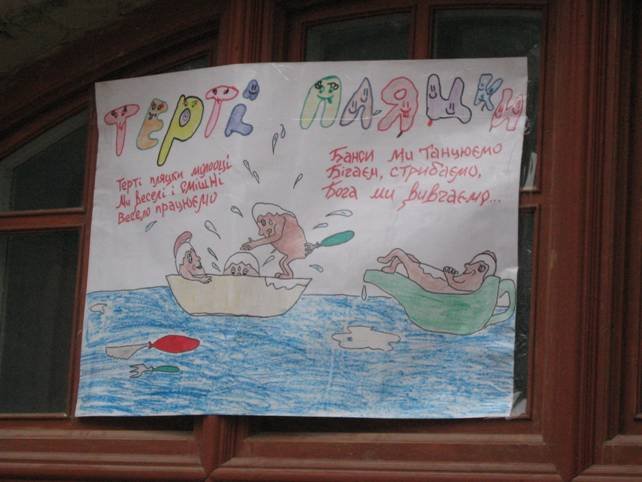 ТЕРТІ ПЛЯЦКИ
Терті пляцки молодці
Ми веселі і смішні
Весело працюємо
Банси ми танцюємо
Бігаєм, стрибаємо,
Бога ми вивчаємо...